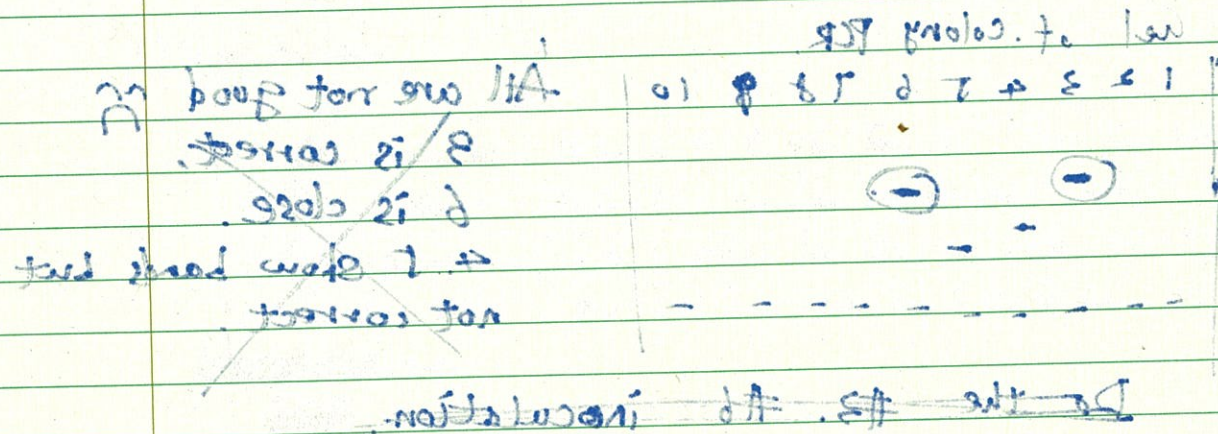 Gel of colony PCR
1 2 3 4 5 6 7 8 9 10
All are not good
3 is correct.
6 is close.
4. 5 show bands but
not correct.
Do the #3. #6 inoculation.